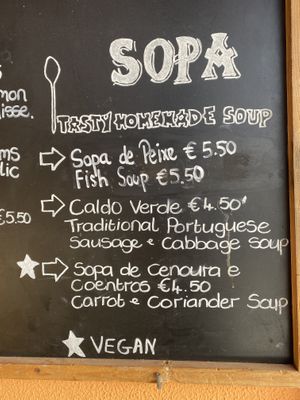 SOPA
TASTY HOMEMADE SOUP
Sopa de Peixe €5.50
Fish Soup €5.50
Caldo Verde €4.50
Traditional Portuguese
Sausage & Cabbage Soup
Sopa de Cenoura e
Coentros €4.50
Carrot & Coriander Soup
VEGAN
€5.50